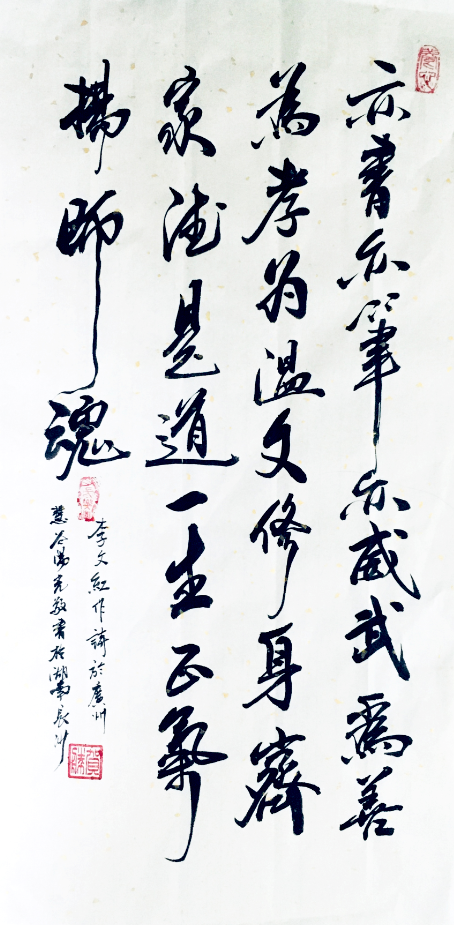 亦書亦筆亦威武為善
為孝為温文修身齊
家德是道一生正氣
揚師魂
李文紅作詩於廣州
慧谷湯光敬書於湖南長沙